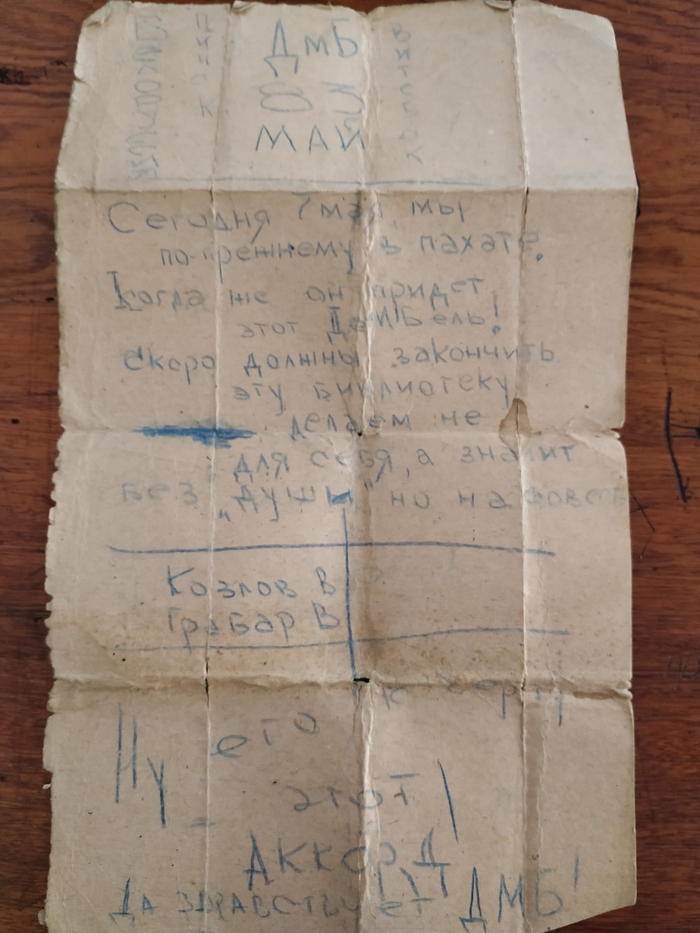 ДМБ
МАЙ
Пинск
Витебск
Сегодня 7 мая, мы
по-прежнему в пахате.
Когда же он придет,
этот ДеМБель!
Скоро должны закончить
эту библиотеку
делаем не
для себя, а значит
без „души" но на совесть
Козлов В
Грабар В
Ну его к черту
этот
АККОРД!
Да здравствует ДМБ!